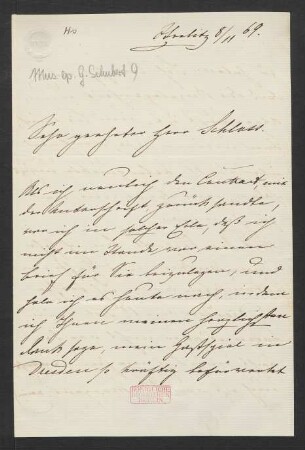 Strelitz 8/11 69.
Mus. ep. G. Schubert 9
Sehr geehrter Herr Schloss.
Als ich neulich den Contract, mit
der Unterschrift zurück sandte,
war ich in solcher Eile, daß ich
nicht im Stande war einen
Brief für Sie beizulegen, und
hole ich es heute nach, indem
ich Ihnen meinen herzlichsten
Dank sage, mein Gastspiel in
Dresden so kräftig befürwortet